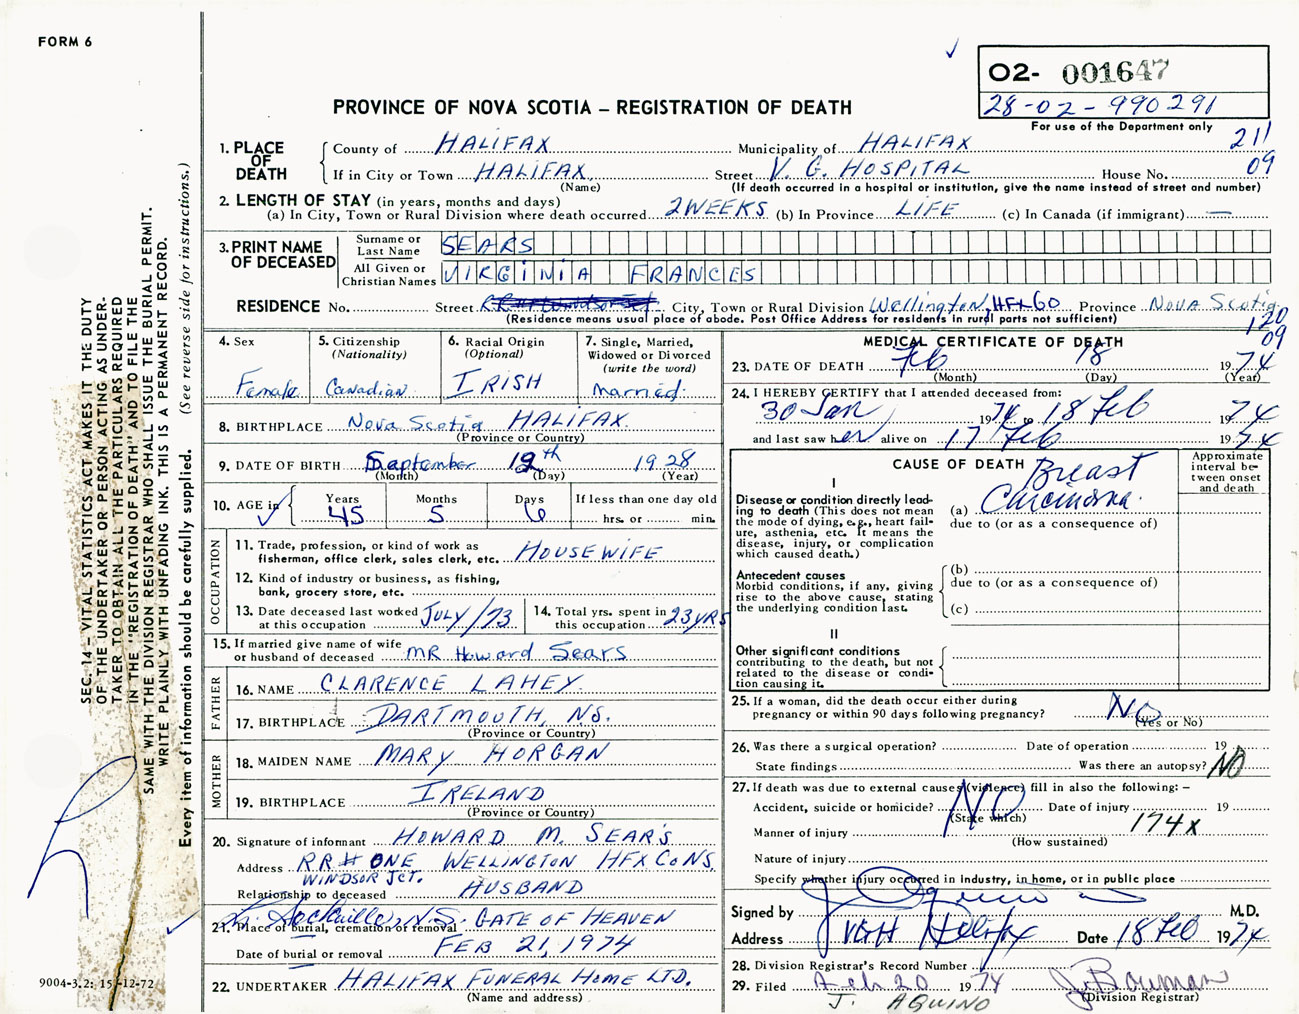 FORM 6
O2- 001647
28-02-990291
For use of the Department only
PROVINCE OF NOVA SCOTIA – REGISTRATION OF DEATH
211
09
1. PLACE OF DEATH
County of HALIFAX Municipality of HALIFAX
If in City or Town HALIFAX Street V. G. HOSPITAL House No.
(Name) (If death occurred in a hospital or institution, give the name instead of street and number)
2. LENGTH OF STAY (in years, months and days)
(a) In City, Town or Rural Division where death occurred 2 WEEKS (b) In Province LIFE (c) In Canada (if immigrant) —
3. PRINT NAME OF DECEASED
Surname or Last Name SEARS
All Given or Christian Names VIRGINIA FRANCES
RESIDENCE No. Street City, Town or Rural Division Wellington, HFX CO Province Nova Scotia
(Residence means usual place of abode. Post Office Address for residents in rural parts not sufficient)
120
09
4. Sex Female
5. Citizenship (Nationality) Canadian
6. Racial Origin (Optional) IRISH
7. Single, Married, Widowed or Divorced (write the word) Married
8. BIRTHPLACE Nova Scotia HALIFAX
(Province or Country)
9. DATE OF BIRTH September 12th 1928
(Month) (Day) (Year)
10. AGE in Years 45 Months 5 Days 6 If less than one day old
hrs. or min.
OCCUPATION
11. Trade, profession, or kind of work as fisherman, office clerk, sales clerk, etc. HOUSEWIFE
12. Kind of industry or business, as fishing, bank, grocery store, etc.
13. Date deceased last worked at this occupation JULY/73
14. Total yrs. spent in this occupation 23 YRS
15. If married give name of wife or husband of deceased MR Howard Sears
FATHER
16. NAME CLARENCE LAHEY
17. BIRTHPLACE DARTMOUTH, N.S.
(Province or Country)
MOTHER
18. MAIDEN NAME MARY HORGAN
19. BIRTHPLACE IRELAND
(Province or Country)
20. Signature of informant HOWARD M. SEARS
Address RR# ONE WELLINGTON HFX CO NS.
WINDSOR JCT.
Relationship to deceased HUSBAND
Sackville, N.S. GATE OF HEAVEN
21. Place of burial, cremation or removal
Date of burial or removal FEB 21, 1974
22. UNDERTAKER HALIFAX FUNERAL HOME LTD.
(Name and address)
MEDICAL CERTIFICATE OF DEATH
23. DATE OF DEATH Feb 18 1974
(Month) (Day) (Year)
24. I HEREBY CERTIFY that I attended deceased from:
30 Jan 1974 to 18 Feb 1974
and last saw her alive on 17 Feb 1974
CAUSE OF DEATH
Approximate interval between onset and death
I
Disease or condition directly leading to death (This does not mean the mode of dying, e.g., heart failure, asthenia, etc. It means the disease, injury, or complication which caused death.)
(a) Breast Carcinoma
due to (or as a consequence of)
Antecedent causes
Morbid conditions, if any, giving rise to the above cause, stating the underlying condition last.
(b)
due to (or as a consequence of)
(c)
II
Other significant conditions
contributing to the death, but not related to the disease or condition causing it.
25. If a woman, did the death occur either during pregnancy or within 90 days following pregnancy? NO
(Yes or No)
26. Was there a surgical operation? Date of operation 19
State findings Was there an autopsy? NO
27. If death was due to external causes (violence) fill in also the following: –
Accident, suicide or homicide? NO Date of injury 19
(State which)
Manner of injury 174X
(How sustained)
Nature of injury
Specify whether injury occurred in Industry, in home, or in public place
Signed by J. Aquino M.D.
Address VGH Halifax Date 18 Feb 1974
28. Division Registrar's Record Number
29. Filed Feb 20 1974 J. Bowman
(Division Registrar)
J. AQUINO
SEC. 14 – VITAL STATISTICS ACT MAKES IT THE DUTY
OF THE UNDERTAKER OR PERSON ACTING AS UNDER-
TAKER TO OBTAIN ALL THE PARTICULARS REQUIRED
IN THE "REGISTRATION OF DEATH" AND TO FILE THE
SAME WITH THE DIVISION REGISTRAR WHO SHALL ISSUE THE BURIAL PERMIT.
WRITE PLAINLY WITH UNFADING INK. THIS IS A PERMANENT RECORD.
Every item of information should be carefully supplied. (See reverse side for instructions.)
9004-3.2: 15-12-72